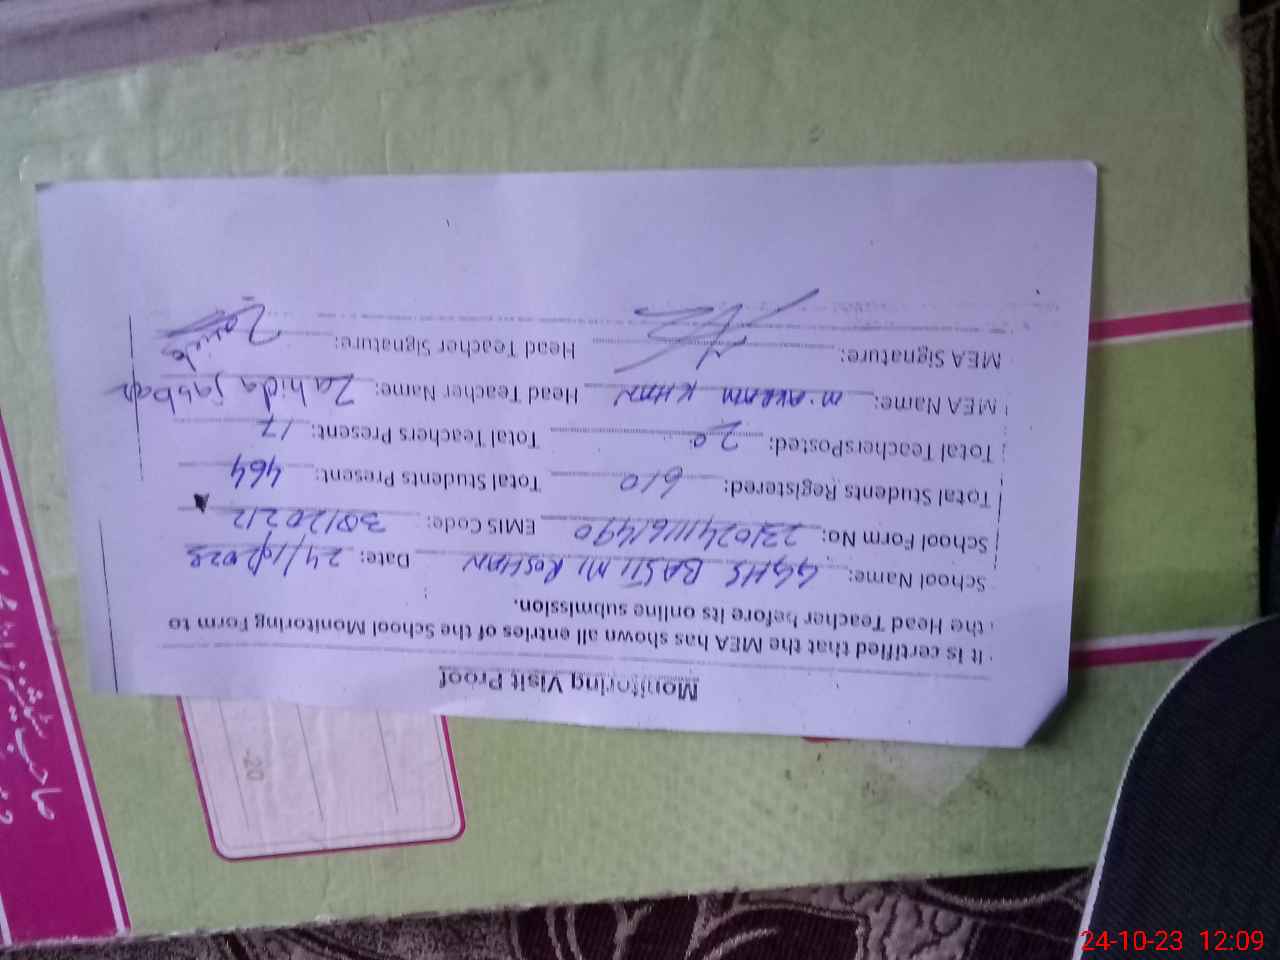 Monitoring Visit Proof
It is certified that the MEA has shown all entries of the School Monitoring Form to
the Head Teacher before its online submission.
School Name: GGHS BASTI M. ROSHAN Date: 24/10/2023
School Form No: EMIS Code:
Total Students Registered: 610 Total Students Present: 464
Total TeachersPosted: 20 Total Teachers Present: 17
MEA Name: M. AKRAM KHAN Head Teacher Name: Zahida jabbar
MEA Signature: Head Teacher Signature:
-20
24-10-23 12:09